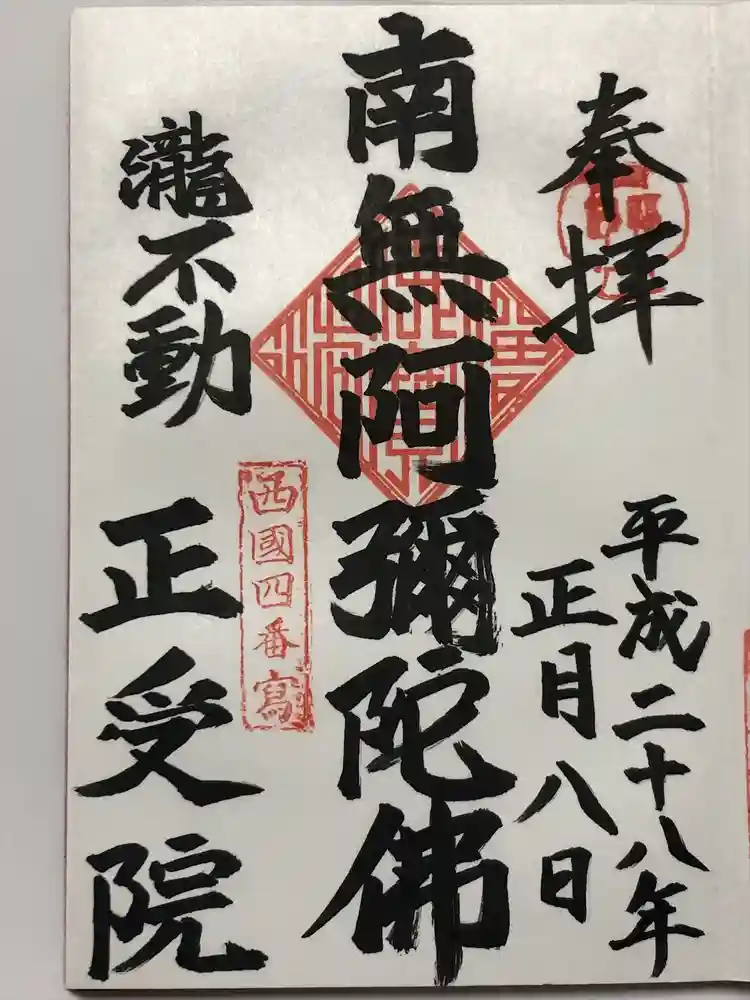 奉拝
平成二十八年
正月八日
南無阿彌陀佛
西國四番寫
瀧不動
正受院